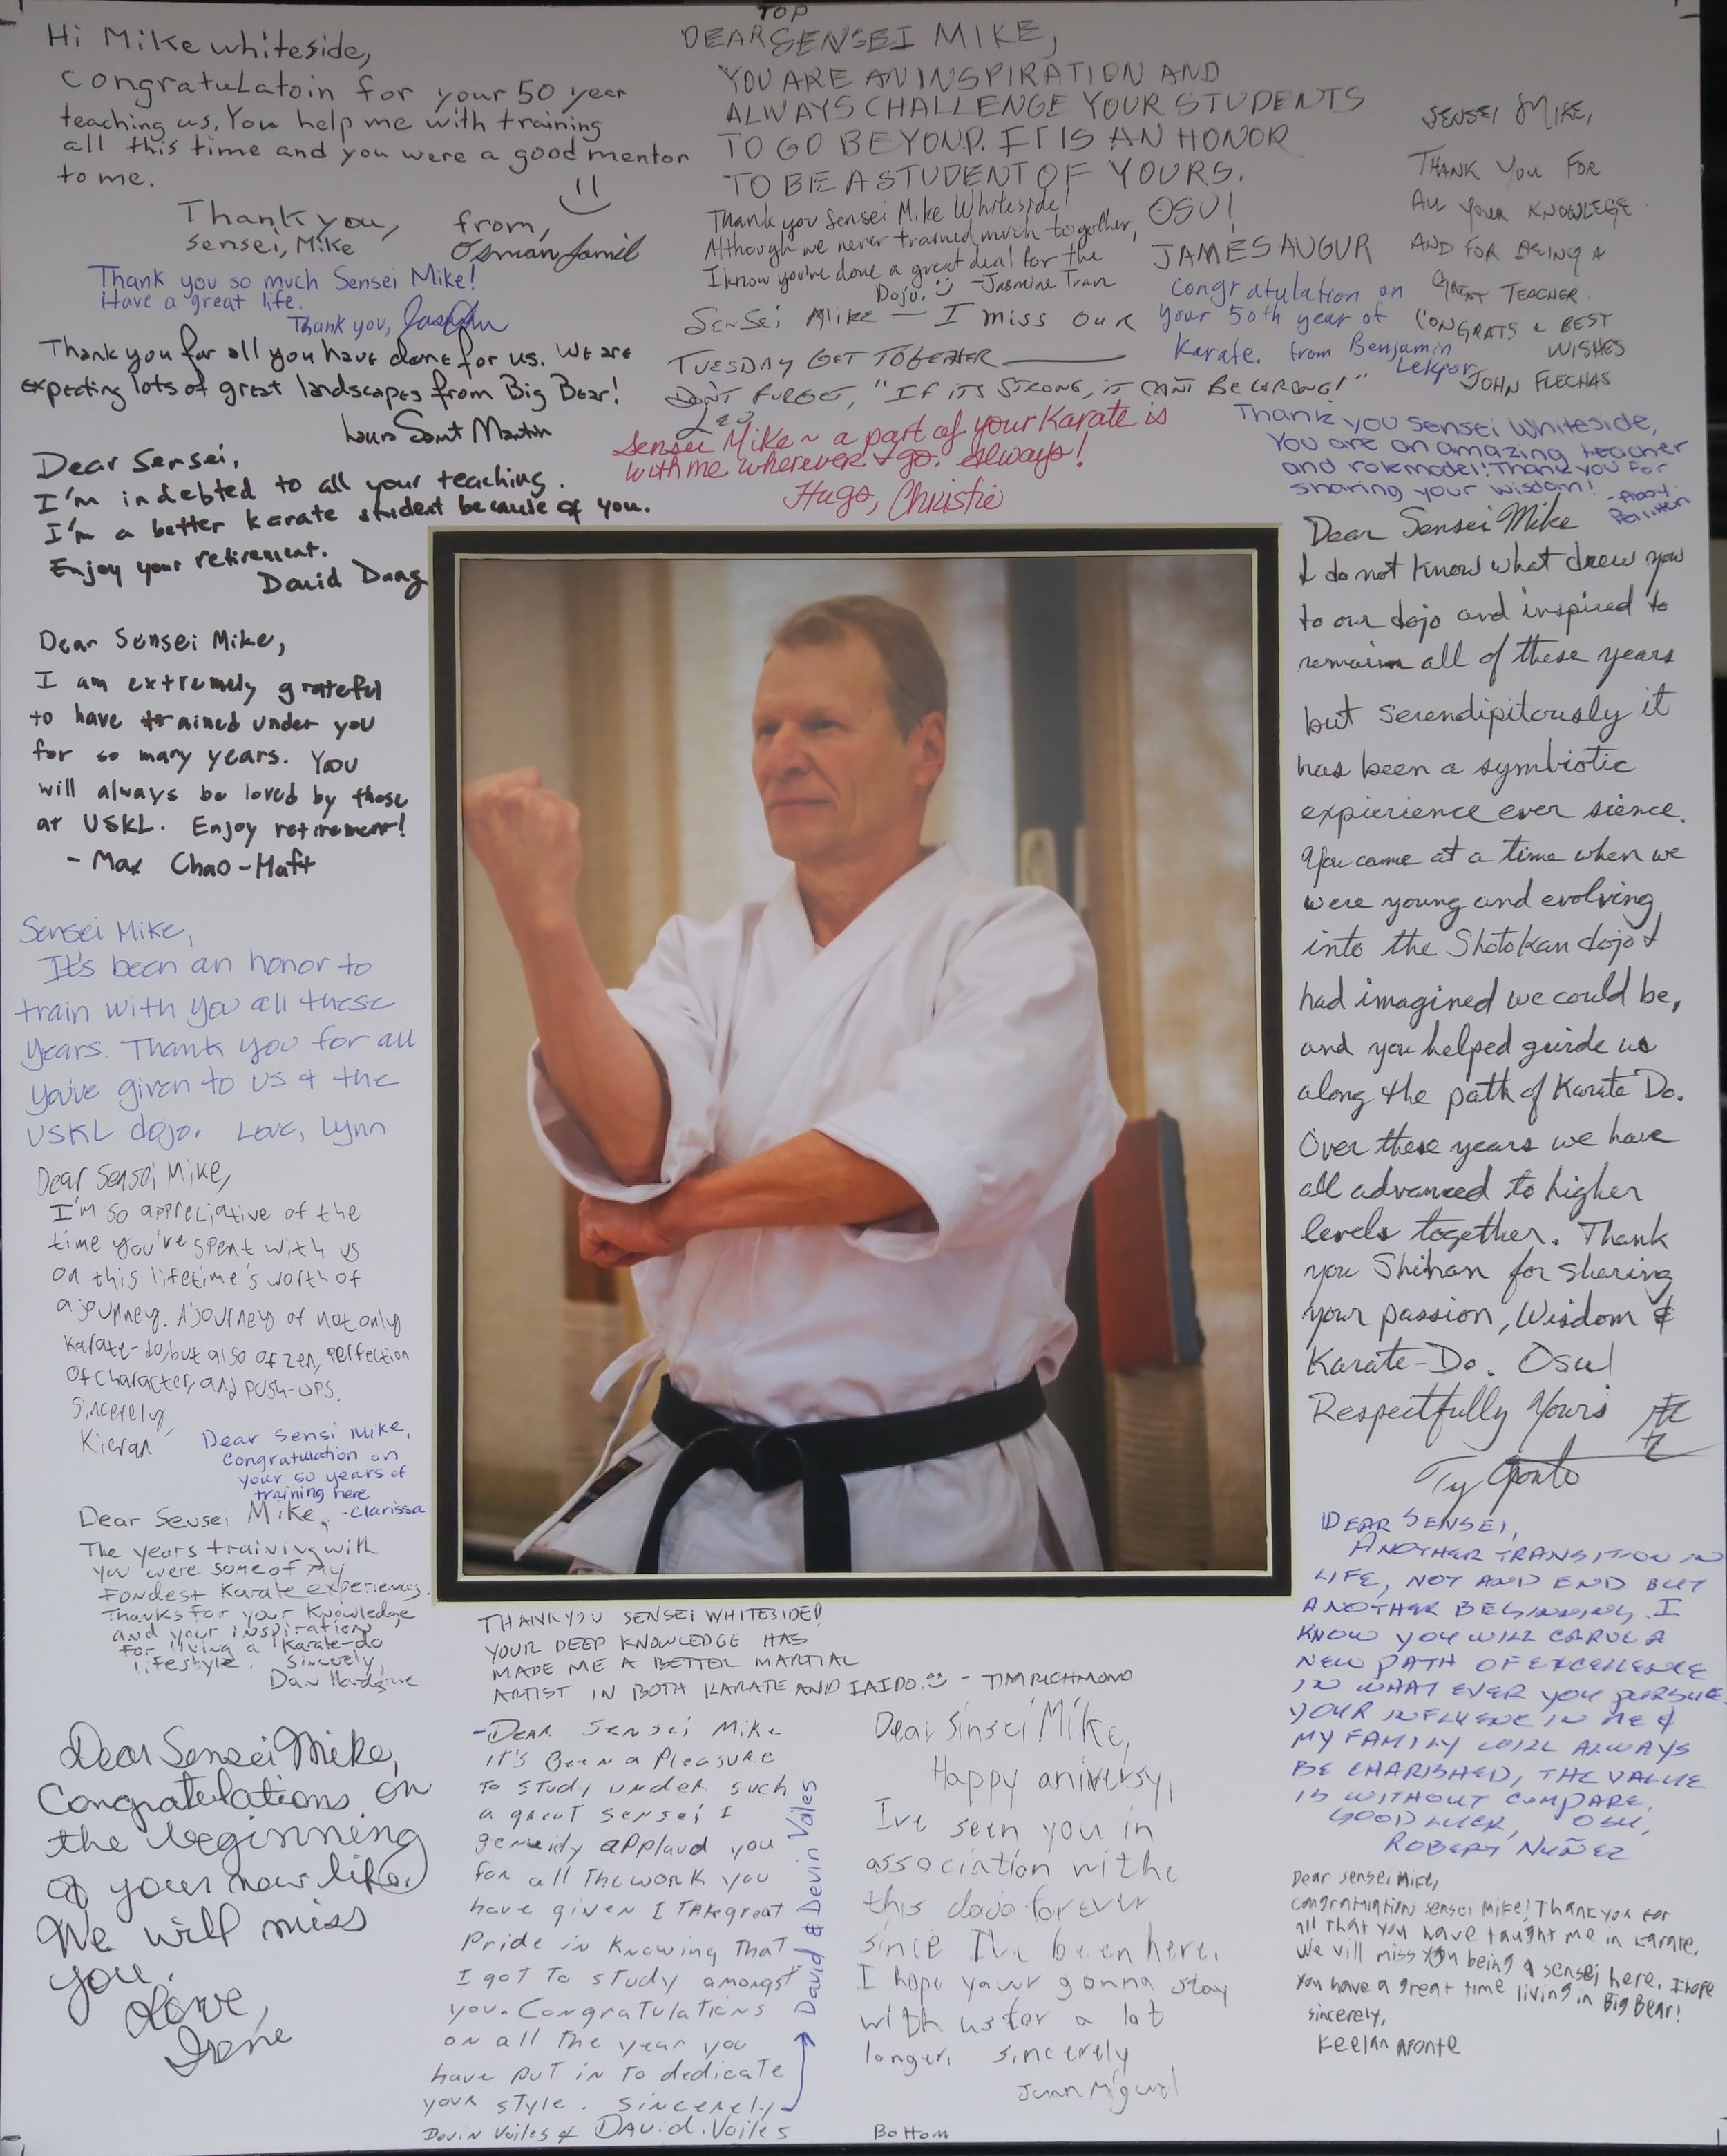 TOP
Hi Mike whiteside,
Congratulatoin for your 50 year
teaching us. You help me with training
all this time and you were a good mentor
to me.
Thank you,
sensei, Mike
from,
Osman Jamil
DEAR SENSEI MIKE,
YOU ARE AN INSPIRATION AND
ALWAYS CHALLENGE YOUR STUDENTS
TO GO BEYOND. IT IS AN HONOR
TO BE A STUDENT OF YOURS.
OSU!
JAMES AUGUR
SENSEI MIKE,
THANK YOU FOR
ALL YOUR KNOWLEGE
AND FOR BEING A
GREAT TEACHER.
CONGRATS & BEST
WISHES
JOHN FLECHAS
Thank you Sensei Mike Whiteside!
Although we never trained much together,
I know you've done a great deal for the
Dojo. -Jasmine Tran
Thank you so much Sensei Mike!
Have a great life.
Thank you,
Sensei Mike — I miss our
TUESDAY GET TOGETHER
DON'T FURGET, "IF ITS STRONG, IT CAN'T BE WRONG!"
Leo
Congratulation on
your 50th year of
Karate. from Benjamin
Lekpor
Thank you for all you have done for us. We are
expecting lots of great landscapes from Big Bear!
Laura Saint Martin
Sensei Mike ~ a part of your Karate is
with me wherever I go. Always!
Hugs, Christie
Thank you Sensei Whiteside,
You are an amazing teacher
and rolemodel! Thank you for
sharing your wisdom!
Dear Sensei,
I'm indebted to all your teaching.
I'm a better karate student because of you.
Enjoy your retirement.
David Dang
Dear Sensei Mike,
I am extremely grateful
to have trained under you
for so many years. You
will always be loved by those
at USKL. Enjoy retirement!
- Max Chao-Haft
Sensei Mike,
It's been an honor to
train with you all these
years. Thank you for all
you've given to us & the
USKL dojo. Love, Lynn
Dear Sensei Mike,
I'm so appreciative of the
time you've spent with us
on this lifetime's worth of
a journey. A journey of not only
Karate-do, but also of zen, perfection
of character, and push-ups.
Sincerely,
Kieran
Dear Sensi Mike,
Congratulation on
your 50 years of
training here
-Clarissa
Dear Sensei Mike,
The years training with
you were some of my
fondest Karate experiences.
Thanks for your Knowledge
and your inspiration
for living a Karate-do
lifestyle. Sincerely,
Dan
Dear Sensei Mike,
Congratulations on
the beginning
of your new life.
We will miss
you.
Love,
Irene
Dear Sensei Mike
I do not know what drew you
to our dojo and inspired to
remain all of these years
but serendipitously it
has been a symbiotic
expierience ever sience.
You came at a time when we
were young and evolving
into the Shotokan dojo I
had imagined we could be,
and you helped guide us
along the path of Karate Do.
Over these years we have
all advanced to higher
levels together. Thank
you Shihan for sharing
your passion, Wisdom &
Karate-Do. Osu!
Respectfully Yours
Ty Aponte
THANK YOU SENSEI WHITESIDE!
YOUR DEEP KNOWLEDGE HAS
MADE ME A BETTER MARTIAL
ARTIST IN BOTH KARATE AND IAIDO. - TIM RICHMOND
-Dear Sensei Mike
it's Been a Pleasure
to study under such
a great sensei I
applaud you
for all the work you
have given I take great
Pride in Knowing That
I got to study amongst
you. Congratulations
on all the year you
have put in to dedicate
your style. Sincerely
Devin Voiles & David. Voiles
David & Devin Voiles
Dear Sinsei Mike,
Happy aniversy,
I've seen you in
association withe
this dojo forever
since I've been here.
I hope your gonna stay
with us for a lot
longer. sincerely
Juan Miguel
DEAR SENSEI,
ANOTHER TRANSITION IN
LIFE, NOT AND END BUT
ANOTHER BEGINNING. I
KNOW YOU WILL CARVE A
NEW PATH OF EXCELLENCE
IN WHAT EVER YOU PURSUE.
YOUR INFLUENCE IN ME &
MY FAMILY WILL ALWAYS
BE CHARISHED, THE VALUE
IS WITHOUT COMPARE.
GOOD LUCK, OSU,
ROBERT NUÑEZ
Dear sensei Mike,
congratulation sensei Mike! Thank you for
all that you have taught me in karate.
We vill miss you being a sensei here. I hope
you have a great time living in Big Bear!
sincerely,
Keelan Aponte
Bottom